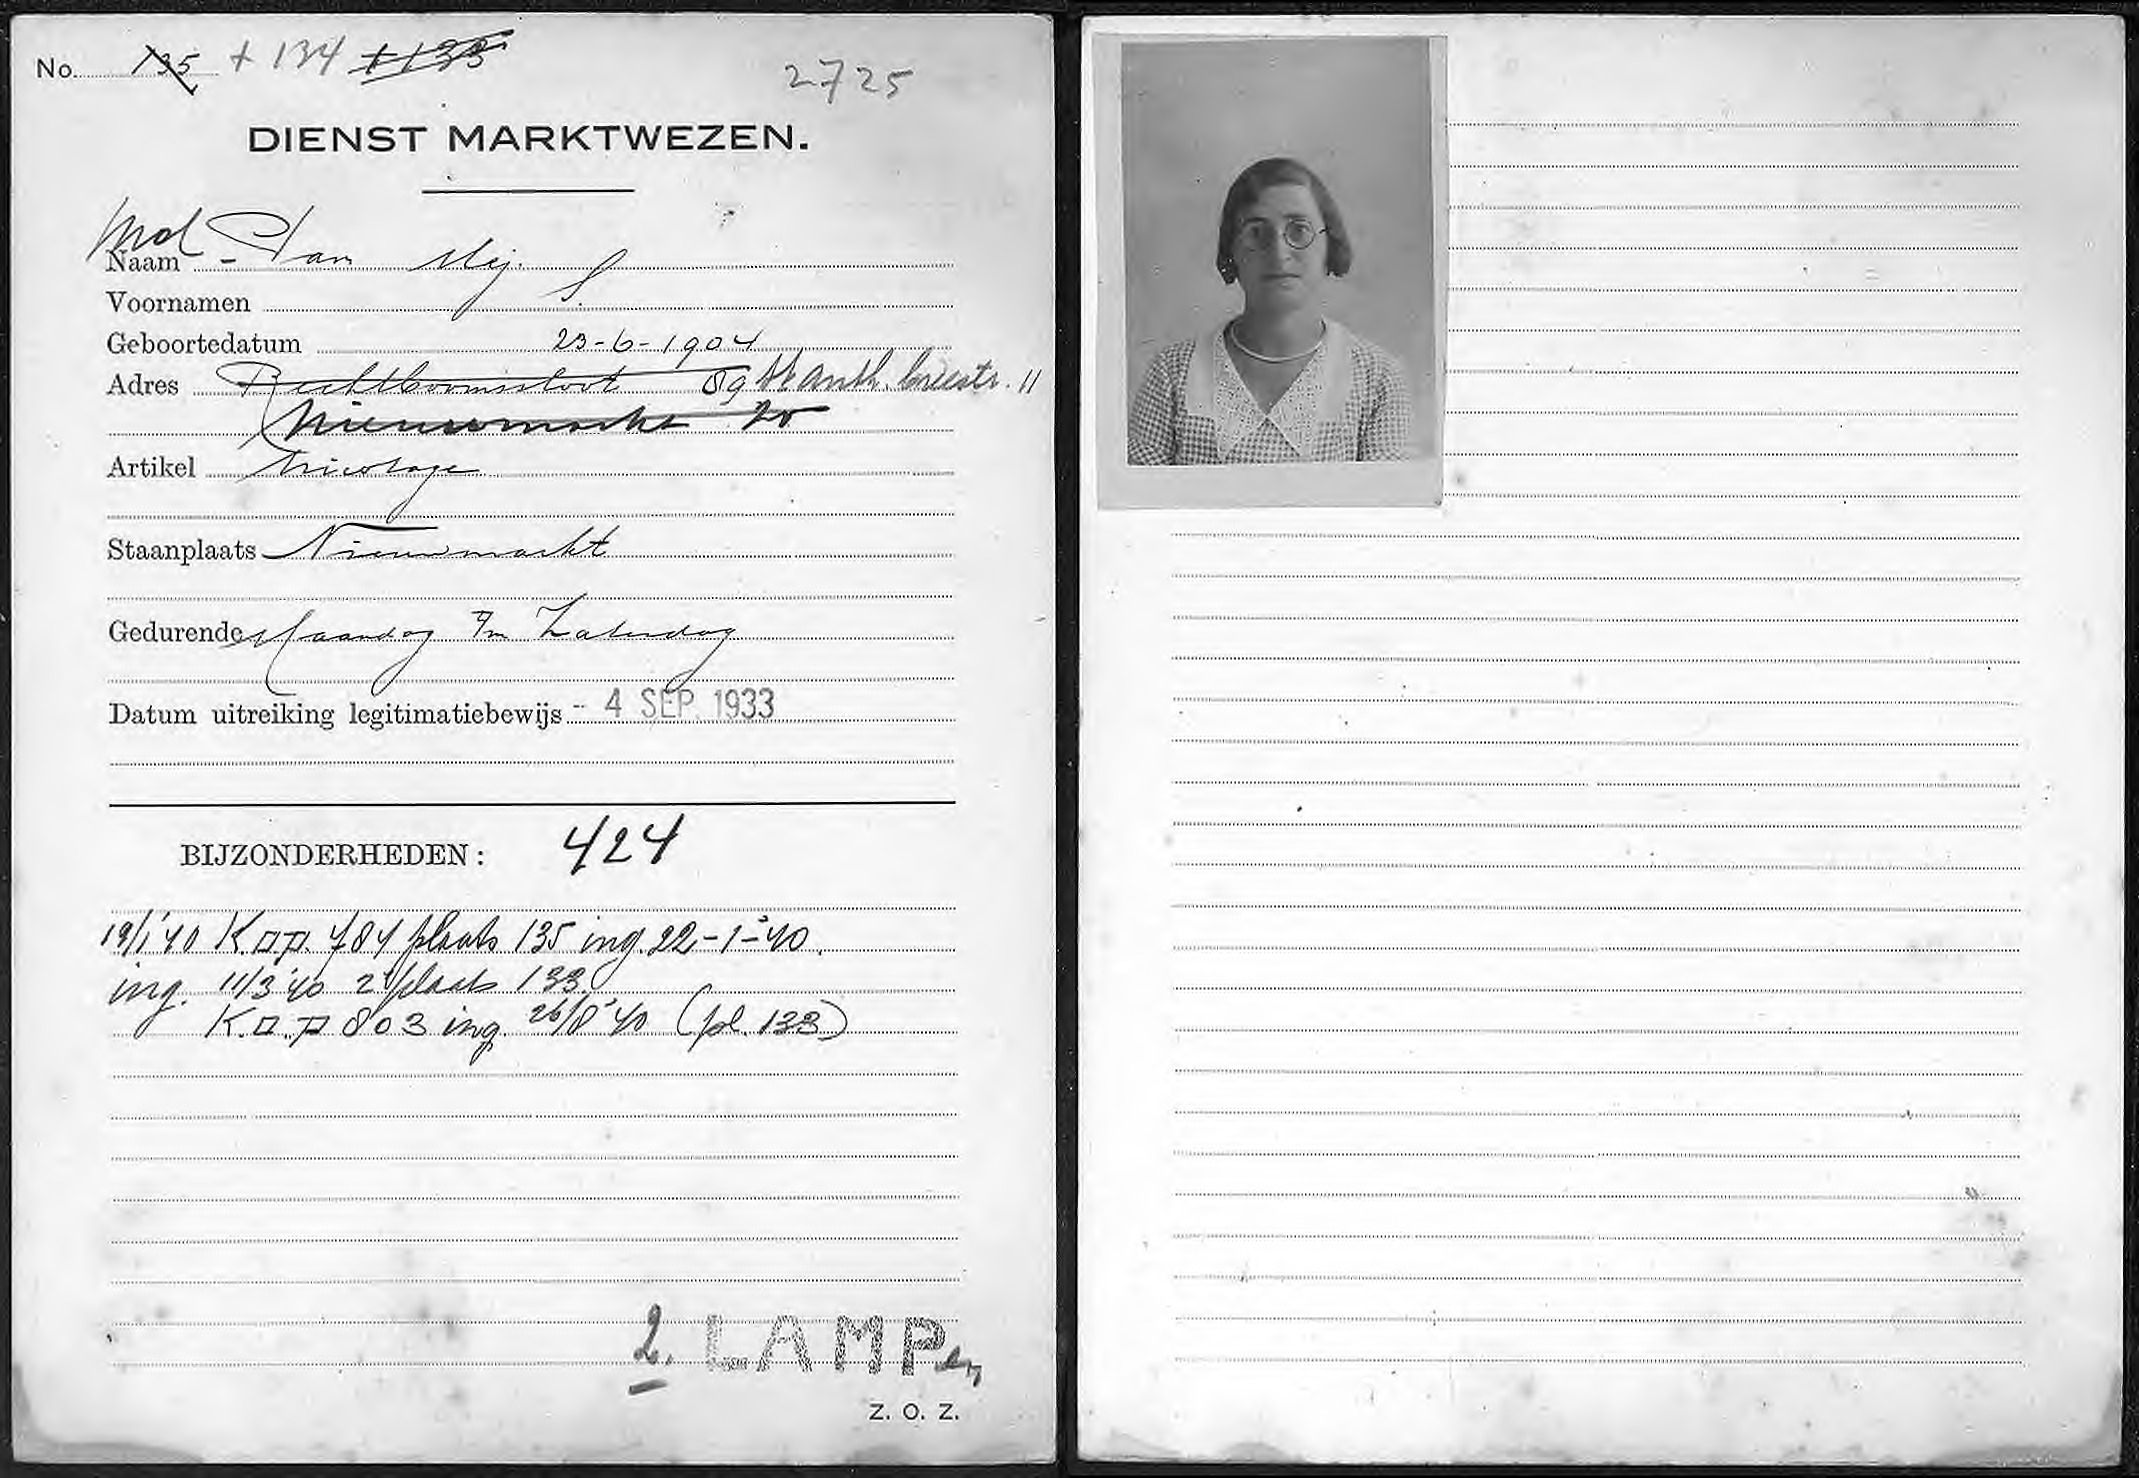 No. 135 + 134 + 133
2725
DIENST MARKTWEZEN.
Mol
Naam - Dam Mej.
Voornamen S.
Geboortedatum 23-6-1904
Adres Rechtboomsloot 89 St Anth. breestr. 11
Nieuwmarkt 20
Artikel tricotage
Staanplaats Nieuwmarkt
Gedurende Maandag t/m Zaterdag
Datum uitreiking legitimatiebewijs - 4 SEP. 1933
BIJZONDERHEDEN: 424
19/1 '40 K. 784 plaats 135 ing. 22-1-'40.
ing. 11/3 '40 2e plaats 133.
K. 803 ing. 26/8 '40 (pl. 133)
2. LAMPen
Z. O. Z.